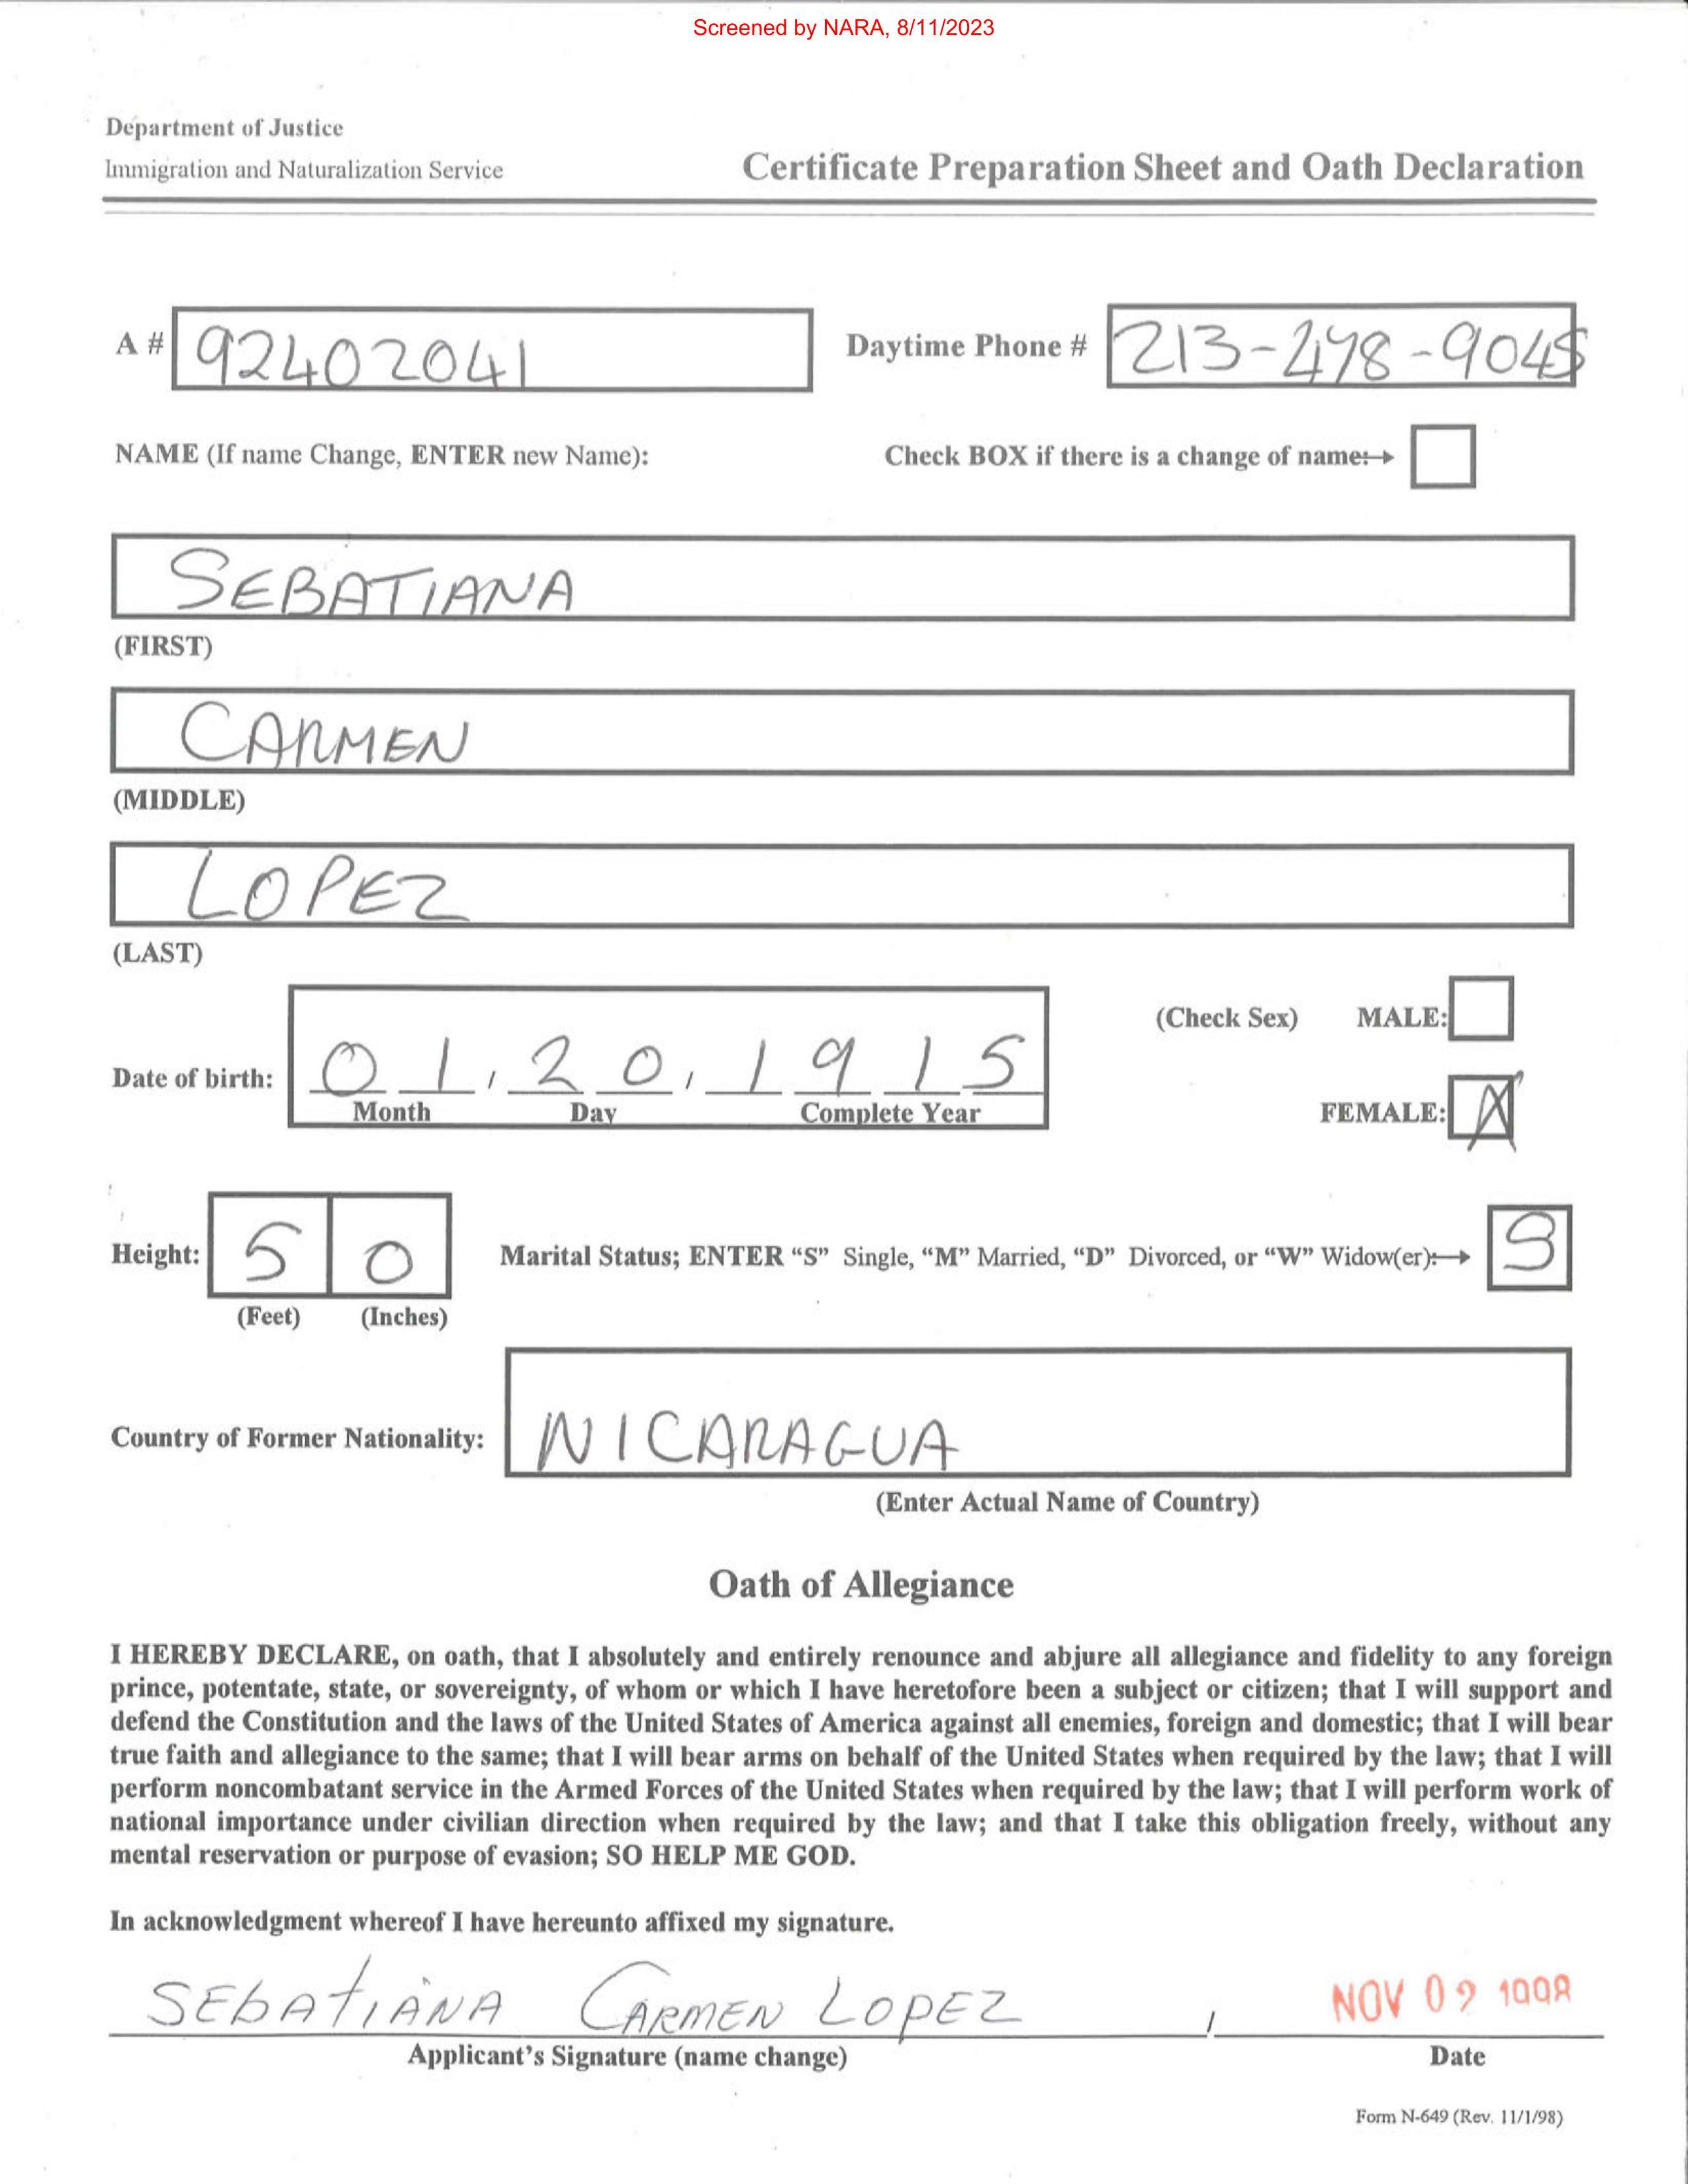 Screened by NARA, 8/11/2023
Department of Justice
Immigration and Naturalization Service
Certificate Preparation Sheet and Oath Declaration
A # 92402041
Daytime Phone # 213-478-9045
NAME (If name Change, ENTER new Name):
Check BOX if there is a change of name:→
SEBATIANA
(FIRST)
CARMEN
(MIDDLE)
LOPEZ
(LAST)
Date of birth: 01, 20, 1915
Month Day Complete Year
(Check Sex) MALE:
FEMALE: X
Height: 5 0
(Feet) (Inches)
Marital Status; ENTER “S” Single, “M” Married, “D” Divorced, or “W” Widow(er):→ S
Country of Former Nationality: NICARAGUA
(Enter Actual Name of Country)
Oath of Allegiance
I HEREBY DECLARE, on oath, that I absolutely and entirely renounce and abjure all allegiance and fidelity to any foreign
prince, potentate, state, or sovereignty, of whom or which I have heretofore been a subject or citizen; that I will support and
defend the Constitution and the laws of the United States of America against all enemies, foreign and domestic; that I will bear
true faith and allegiance to the same; that I will bear arms on behalf of the United States when required by the law; that I will
perform noncombatant service in the Armed Forces of the United States when required by the law; that I will perform work of
national importance under civilian direction when required by the law; and that I take this obligation freely, without any
mental reservation or purpose of evasion; SO HELP ME GOD.
In acknowledgment whereof I have hereunto affixed my signature.
SEBATIANA CARMEN LOPEZ , NOV 02 1998
Applicant’s Signature (name change) Date
Form N-649 (Rev. 11/1/98)